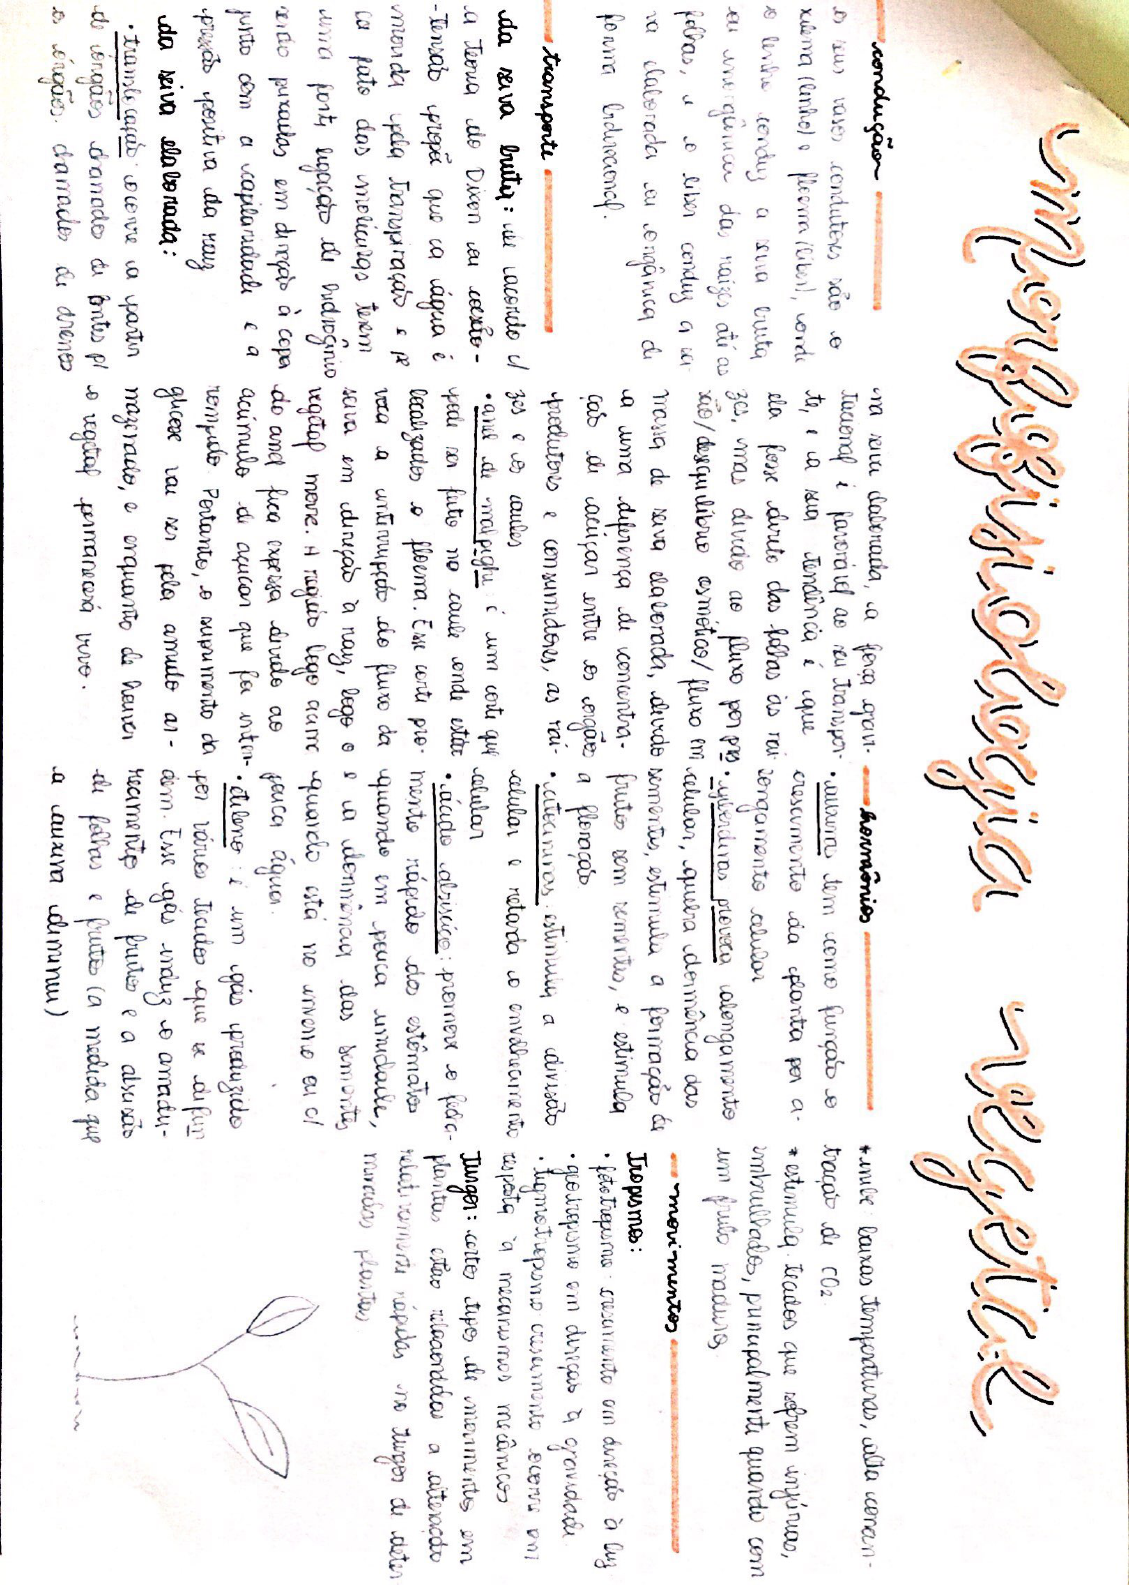 morfofisiologia vegetal
condução
os seus vasos condutores são o
xilema (lenho) e floema (líber), onde
o lenho conduz a seiva bruta
ou inorgânica das raízes até as
folhas, e o líber conduz a sei-
va elaborada ou orgânica de
forma bidirecional.
transporte
da seiva bruta: de acordo c/
a Teoria do Dixon ou coesão-
-Tensão propõe que a água é
movida pela transpiração e pe
lo fato das moléculas terem
uma forte ligação de hidrogênio
sendo puxadas em direção à copa
junto com a capilaridade e a
pressão positiva da raiz
da seiva elaborada:
• translocação: ocorre a partir
de órgãos chamados de fontes p/
os órgãos chamados de drenos
na seiva elaborada, a força gravi-
tacional é favorável ao seu transpor-
te, e a sua tendência é que
ela fosse direto das folhas às raí
zes, mas devido ao fluxo por pres
são/desequilíbrio osmótico/fluxo em
massa de seiva elaborada, devido
a uma diferença de concentra-
ção de açúcar entre os órgãos
produtores e consumidores, as raí-
zes e os caules
• anel de malpighi: é um corte que
pode ser feito no caule onde estão
localizados o floema. Esse corte pro-
voca a interrupção do fluxo da
seiva em direção à raiz, logo o
vegetal morre. A região logo acima
do anel fica expessa devido ao
acúmulo de açúcar que foi inter-
rompido. Portanto, o suprimento da
glicose vai ser pelo amido ar-
mazenado, e enquanto de houver
o vegetal permanecerá vivo.
hormônios
• auxina: tem como função o
crescimento da planta por a-
longamento celular
• giberelinas: provoca alongamento
celular, quebra dormência das
sementes, estimula a formação de
fruto sem sementes, e estimula
a floração
• citocininas: estimula a divisão
celular e retarda o envelhecimento
celular
• ácido abscísico: promove o fecha-
mento rápido dos estômatos
quando em pouca umidade,
e a dormência das sementes
quando está no inverno ou c/
pouca água.
• etileno: é um gás produzido
por vários tecidos que se difun
dem. Esse gás induz o amadu-
recimento de frutos e a abscisão
de folhas e frutos (a medida que
a auxina diminui)
* inibe: baixas temperaturas, alta concen-
tração de CO2
* estimula: tecidos que sofrem injúrias,
embrulhados, principalmente quando com
um fruto maduro
movimentos
Tropismo:
• fototropismo: crescimento em direção à luz
• geotropismo em direção à gravidade
• tigmotropismo crescimento ocorre em
resposta à mecanismos mecânicos
Turgor: certos tipos de movimentos em
plantas estão relacionados a alteração
relativamente rápidas no turgor de deter
minadas plantas.